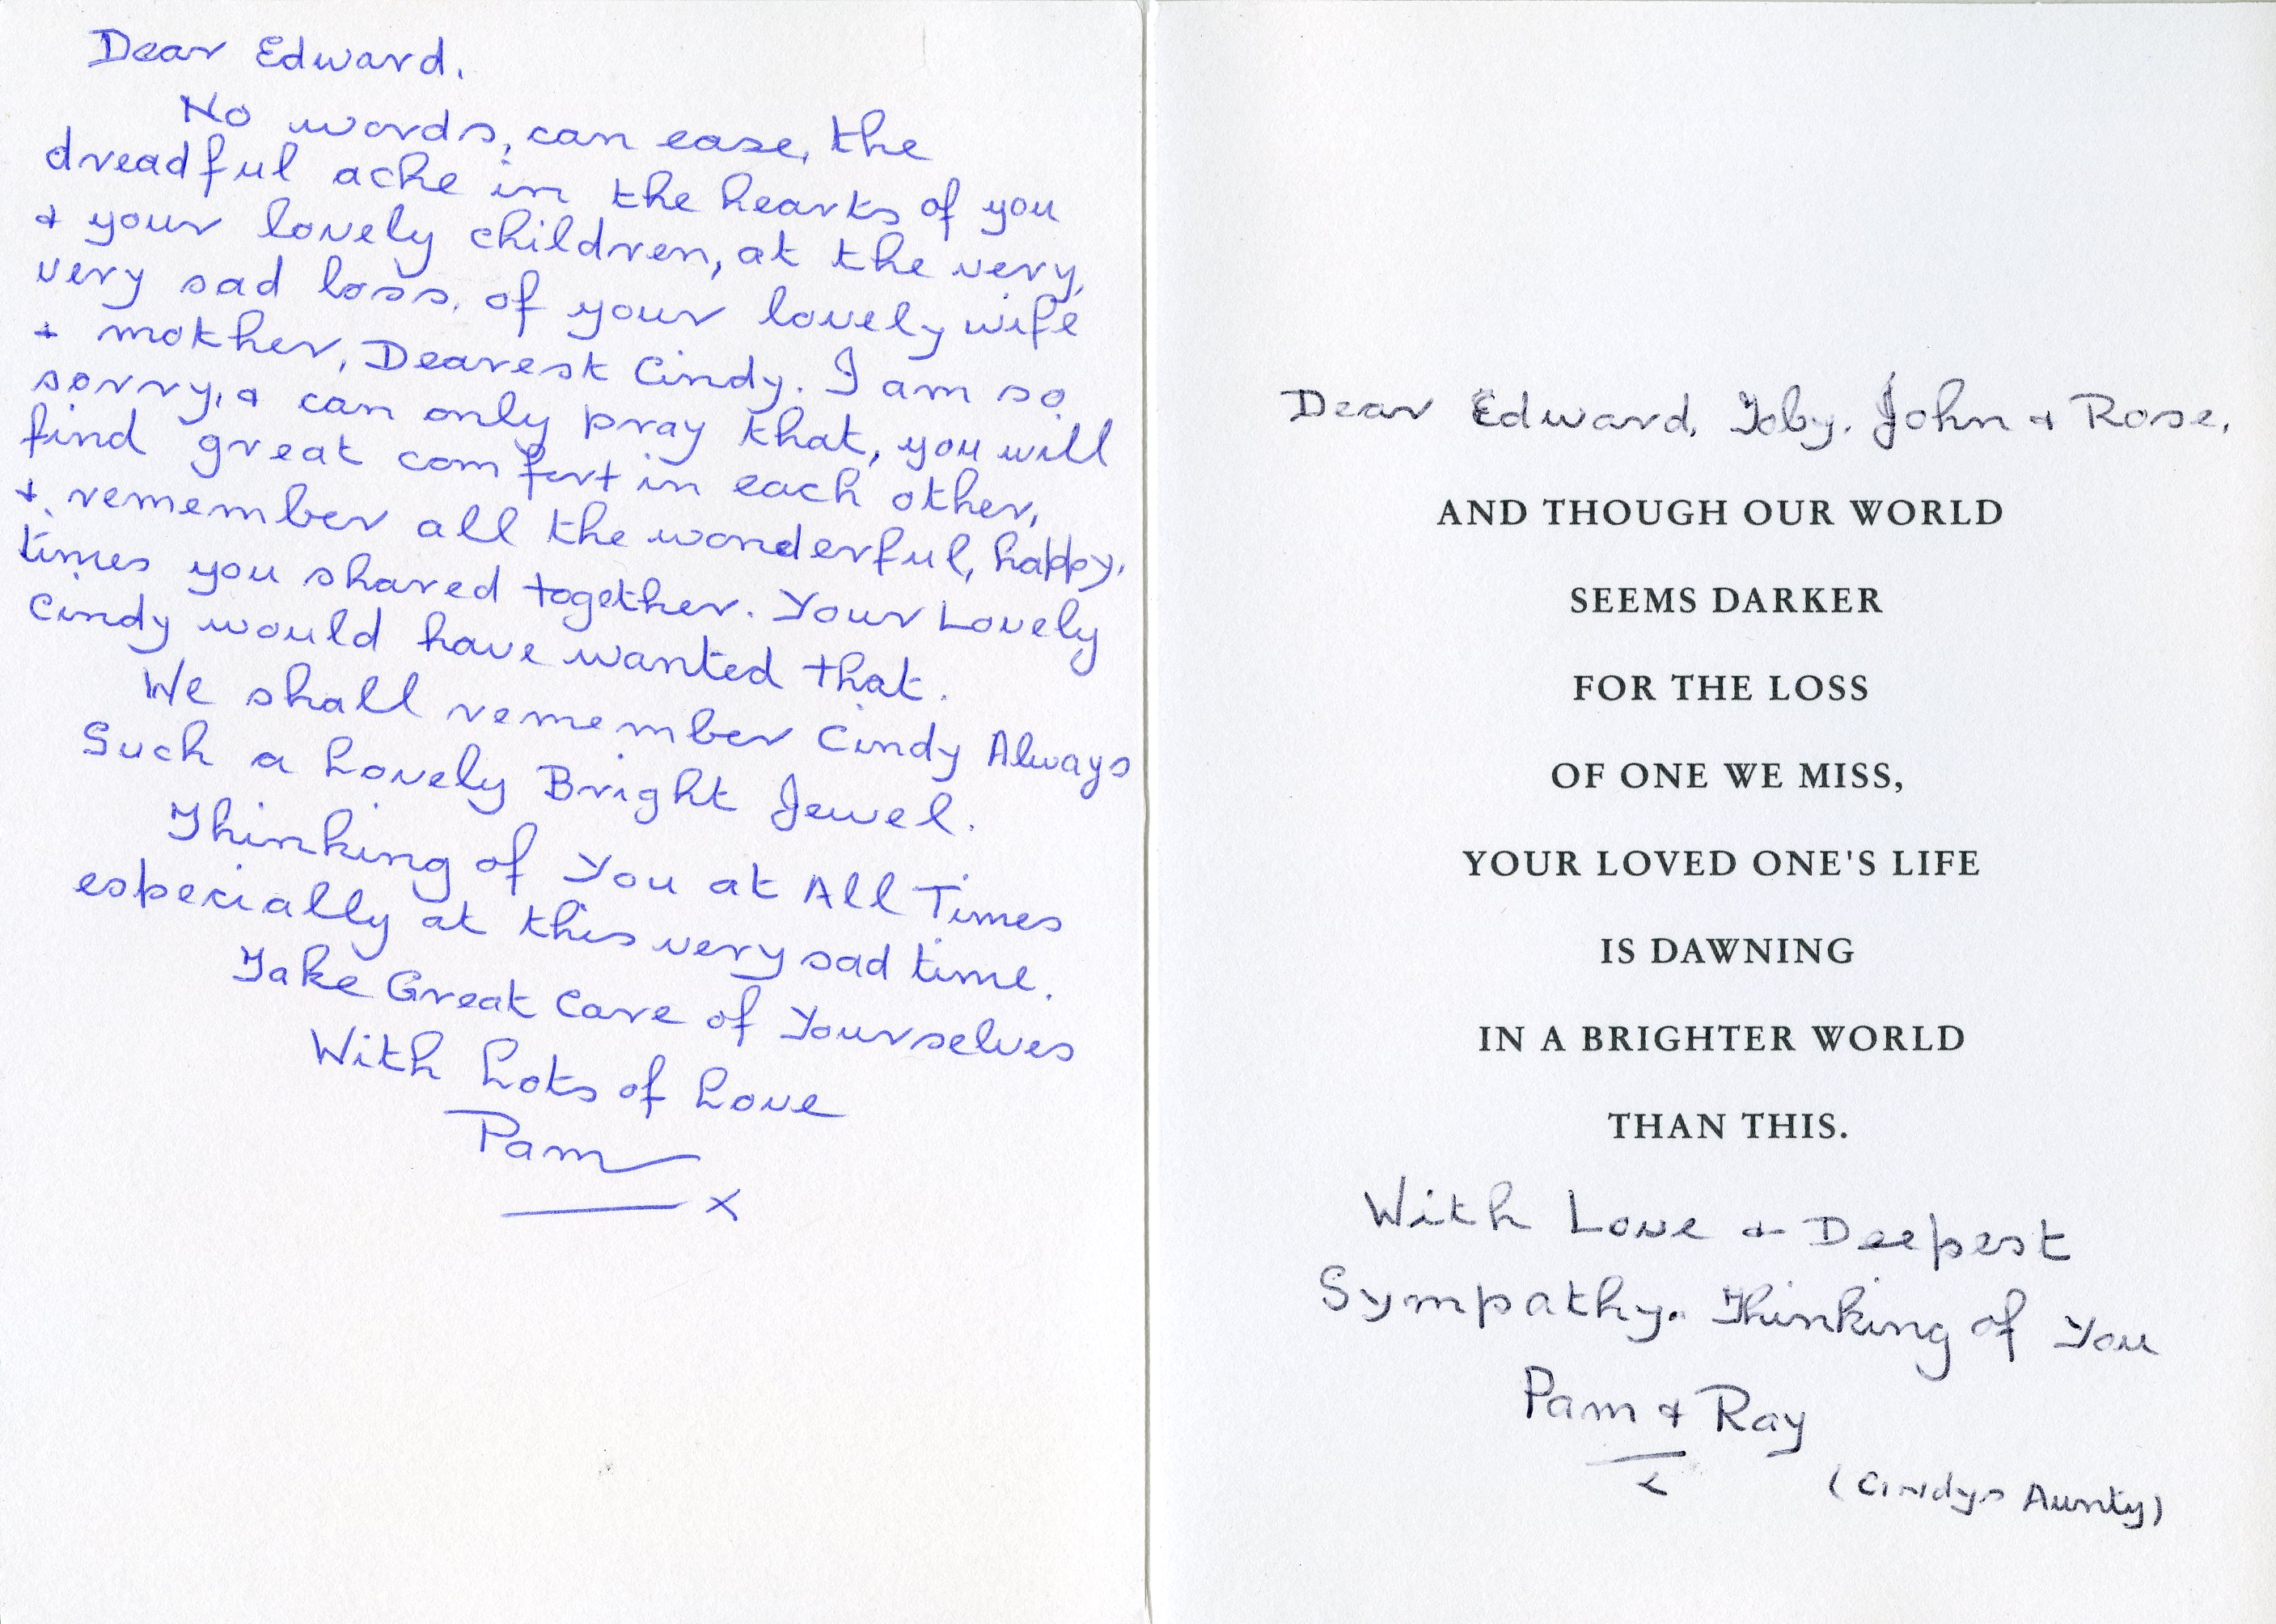 Dear Edward.
No words, can ease, the
dreadful ache in the hearts of you
& your lovely children, at the very,
very sad loss. of your lovely wife
+ mother, Dearest Cindy. I am so
sorry, & can only pray that, you will
find great comfort in each other,
+ remember all the wonderful, happy.
times you shared together. Your Lovely
Cindy would have wanted that.
We shall remember Cindy Always
Such a Lovely Bright Jewel.
Thinking of You at All Times
especially at this very sad time.
Take Great Care of Yourselves
With Lots of Love
Pam
x
Dear Edward, Toby, John & Rose,
AND THOUGH OUR WORLD
SEEMS DARKER
FOR THE LOSS
OF ONE WE MISS,
YOUR LOVED ONE'S LIFE
IS DAWNING
IN A BRIGHTER WORLD
THAN THIS.
With Love & Deepest
Sympathy. Thinking of You
Pam & Ray
x
(Cindys Aunty)